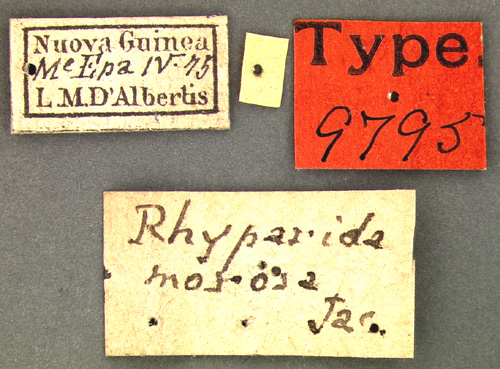 Nuova Guinea
Mt Epa IV-75
L.M.D'Albertis
Type.
9795
Rhyparida
morosa
Jac.